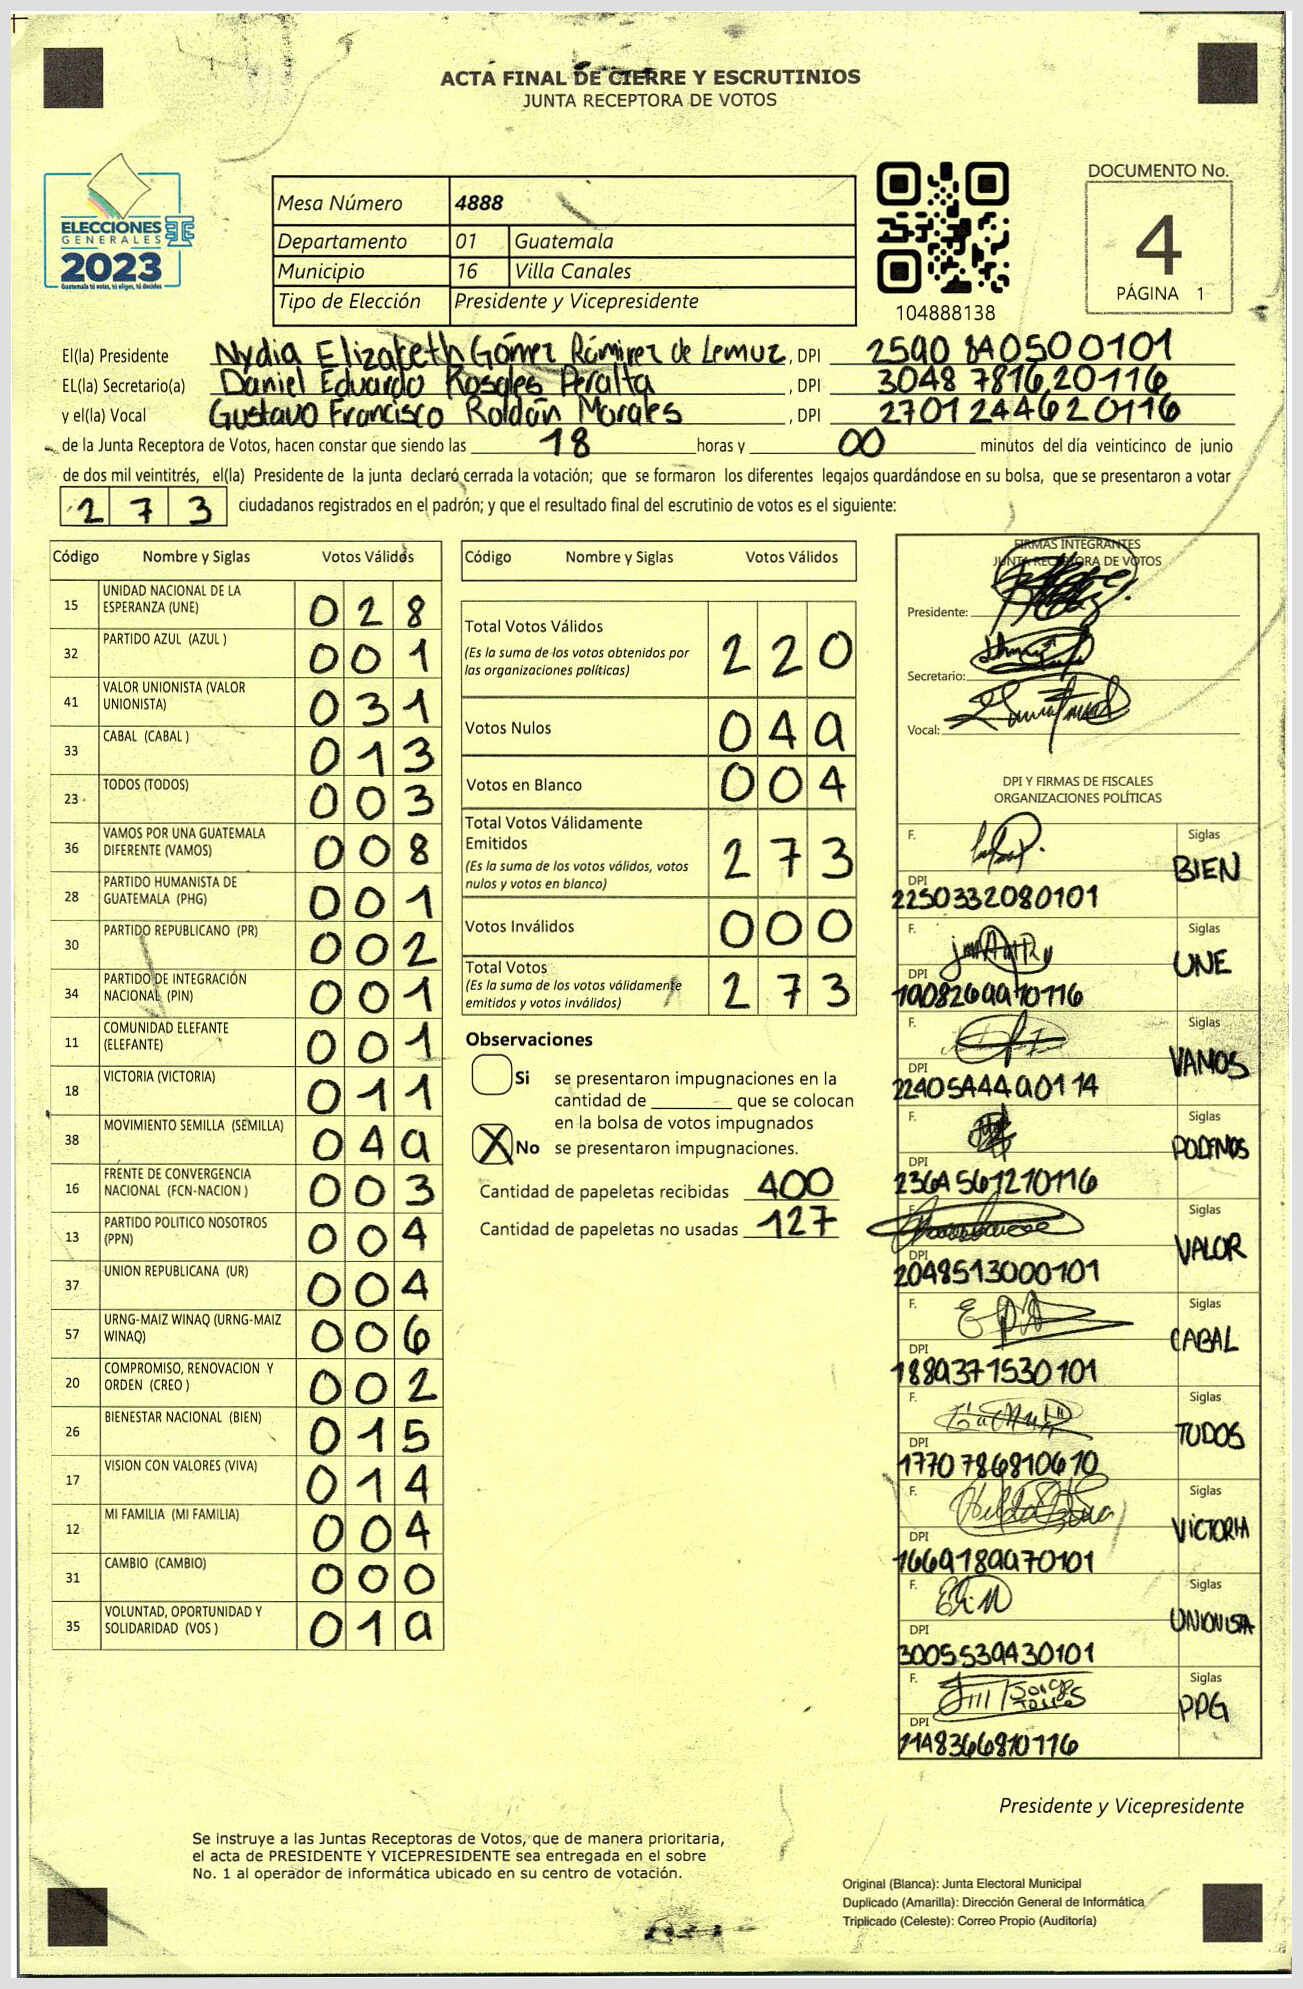 ACTA FINAL DE CIERRE Y ESCRUTINIOS
JUNTA RECEPTORA DE VOTOS
ELECCIONES
GENERALES
2023
Guatemala tú votas, tú eliges, tú decides
Mesa Número 4888
Departamento 01 Guatemala
Municipio 16 Villa Canales
Tipo de Elección Presidente y Vicepresidente
104888138
DOCUMENTO No.
4
PÁGINA 1
El(la) Presidente Nydia Elizabeth Gómez Rámirez de Lemuz, DPI 2590 840500101
EL(la) Secretario(a) Daniel Eduardo Rosales Peralta, DPI 3048 781620116
y el(la) Vocal Gustavo Francisco Roldán Morales, DPI 2701244620116
de la Junta Receptora de Votos, hacen constar que siendo las 18 horas y 00 minutos del día veinticinco de junio
de dos mil veintitrés, el(la) Presidente de la junta declaró cerrada la votación; que se formaron los diferentes legajos guardándose en su bolsa, que se presentaron a votar
273 ciudadanos registrados en el padrón; y que el resultado final del escrutinio de votos es el siguiente:
Código Nombre y Siglas Votos Válidos
15 UNIDAD NACIONAL DE LA ESPERANZA (UNE) 028
32 PARTIDO AZUL (AZUL ) 001
41 VALOR UNIONISTA (VALOR UNIONISTA) 031
33 CABAL (CABAL ) 013
23 TODOS (TODOS) 003
36 VAMOS POR UNA GUATEMALA DIFERENTE (VAMOS) 008
28 PARTIDO HUMANISTA DE GUATEMALA (PHG) 001
30 PARTIDO REPUBLICANO (PR) 002
34 PARTIDO DE INTEGRACIÓN NACIONAL (PIN) 001
11 COMUNIDAD ELEFANTE (ELEFANTE) 001
18 VICTORIA (VICTORIA) 011
38 MOVIMIENTO SEMILLA (SEMILLA) 049
16 FRENTE DE CONVERGENCIA NACIONAL (FCN-NACION ) 003
13 PARTIDO POLITICO NOSOTROS (PPN) 004
37 UNION REPUBLICANA (UR) 004
57 URNG-MAIZ WINAQ (URNG-MAIZ WINAQ) 006
20 COMPROMISO, RENOVACION Y ORDEN (CREO ) 002
26 BIENESTAR NACIONAL (BIEN) 015
17 VISION CON VALORES (VIVA) 014
12 MI FAMILIA (MI FAMILIA) 004
31 CAMBIO (CAMBIO) 000
35 VOLUNTAD, OPORTUNIDAD Y SOLIDARIDAD (VOS ) 019
Código Nombre y Siglas Votos Válidos
Total Votos Válidos 220
(Es la suma de los votos obtenidos por
las organizaciones políticas)
Votos Nulos 049
Votos en Blanco 004
Total Votos Válidamente
Emitidos 273
(Es la suma de los votos válidos, votos
nulos y votos en blanco)
Votos Inválidos 000
Total Votos 273
(Es la suma de los votos válidamente
emitidos y votos inválidos)
Observaciones
Si se presentaron impugnaciones en la
cantidad de ________ que se colocan
en la bolsa de votos impugnados
X No se presentaron impugnaciones.
Cantidad de papeletas recibidas 400
Cantidad de papeletas no usadas 127
FIRMAS INTEGRANTES
JUNTA RECEPTORA DE VOTOS
Presidente:
Secretario:
Vocal:
DPI Y FIRMAS DE FISCALES
ORGANIZACIONES POLÍTICAS
F. Siglas BIEN
DPI 2250332080101
F. Siglas UNE
DPI 1908269970116
F. Siglas VAMOS
DPI 2240544490114
F. Siglas PODEMOS
DPI 2364561270116
F. Siglas VALOR
DPI 2048513000101
F. Siglas CABAL
DPI 1889371530101
F. Siglas TODOS
DPI 1770786810610
F. Siglas VICTORIA
DPI 1669189970101
F. Siglas UNIONISTA
DPI 3005539430101
F. Siglas PPG
DPI 2148366810116
Presidente y Vicepresidente
Se instruye a las Juntas Receptoras de Votos, que de manera prioritaria,
el acta de PRESIDENTE Y VICEPRESIDENTE sea entregada en el sobre
No. 1 al operador de informática ubicado en su centro de votación.
Original (Blanca): Junta Electoral Municipal
Duplicado (Amarilla): Dirección General de Informática
Triplicado (Celeste): Correo Propio (Auditoría)